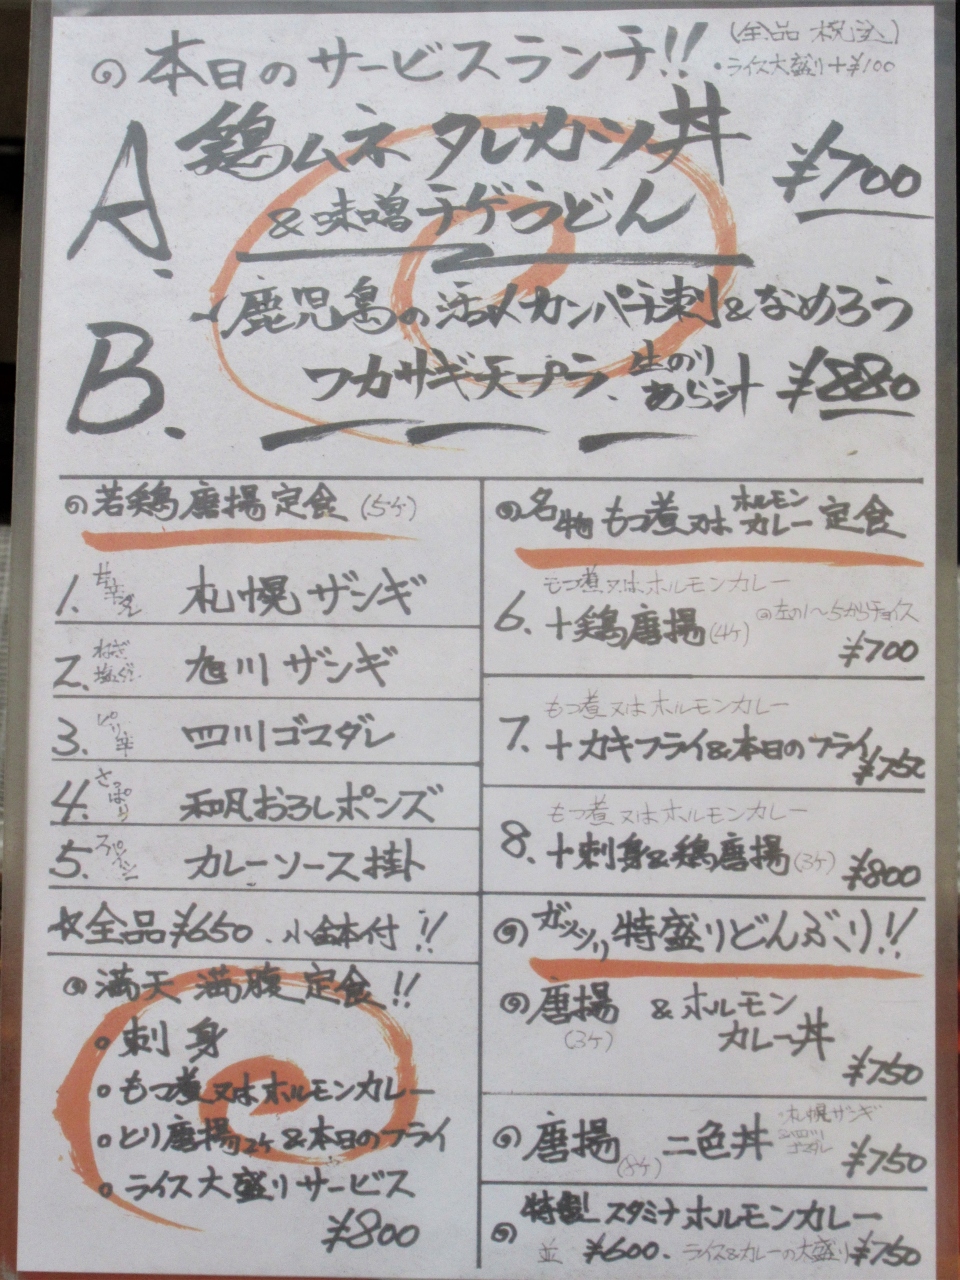 本日のサービスランチ!!
(全品 税込)
・ライス大盛り+¥100
A.
鶏ムネ タレカツ丼
&味噌チゲうどん
¥700
B.
鹿児島の活〆カンパチ刺&なめろう
ワカサギ天プラ、生のりあら汁
¥880
若鶏唐揚定食 (5ケ)
1. 甘辛ダレ 札幌ザンギ
2. ねぎ塩だれ 旭川ザンギ
3. ピリ辛 四川ゴマダレ
4. さっぱり 和風おろしポンズ
5. カレーソース掛
☆全品¥650、小鉢付!!
満天 満腹定食!!
・刺身
・もつ煮又はホルモンカレー
・とり唐揚2ケ&本日のフライ
・ライス大盛りサービス
¥800
名物 もつ煮又はホルモンカレー定食
もつ煮又はホルモンカレー
6. +鶏唐揚(4ケ) 左の1〜5からチョイス
¥700
もつ煮又はホルモンカレー
7. +カキフライ&本日のフライ
¥750
もつ煮又はホルモンカレー
8. +刺身&鶏唐揚(3ケ)
¥800
ガッツリ 特盛りどんぶり!!
唐揚(3ケ)&ホルモンカレー丼
¥750
唐揚 二色丼
札幌ザンギ
&四川ゴマダレ
¥750
特製 スタミナホルモンカレー
並 ¥600、ライス&カレーの大盛り¥750